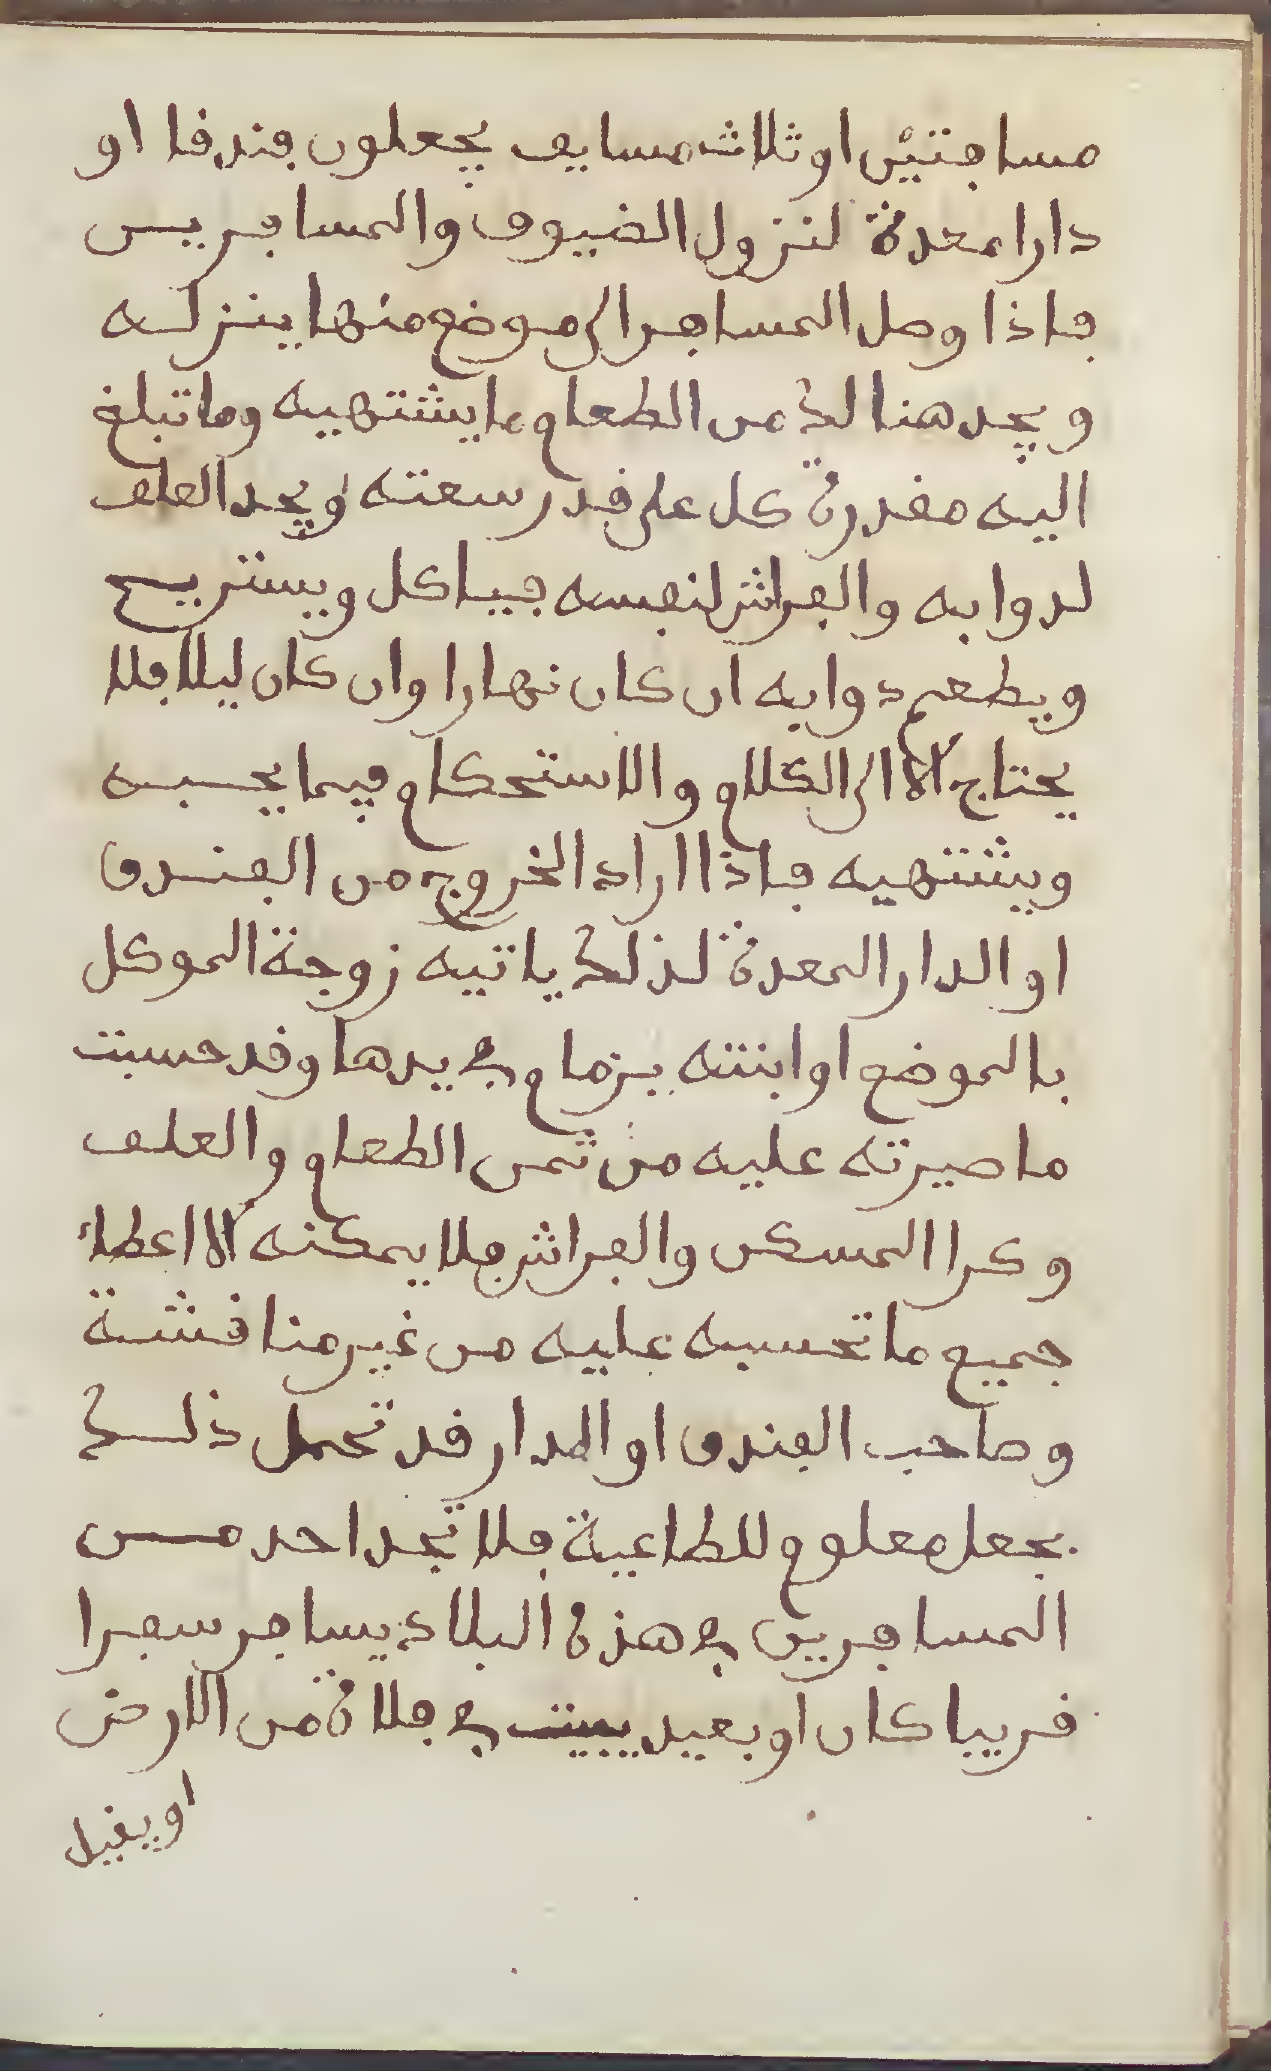 مسافتين او ثلاث مسايف يجعلون فندقا او
دارا معدة لنزول الضيوف والمسافرين
فاذا وصل المسافر الى موضع منها ينزله
ويجد هنالك من الطعام ما يشتهيه وما تبلغ
اليه مقدرة كل على قدر سعته ويجد العلف
لدوابه والفراش لنفسه فياكل ويستريح
ويطعم دوابه ان كان نهارا وان كان ليلا فلا
يحتاج الا الى الكلام والاستحكام فيما يحبه
ويشتهيه فاذا اراد الخروج من الفندق
او الدار المعدة لذلك ياتيه زوجة الموكل
بالموضع او ابنته بزمام في يدها وقد حسبت
ما صيرته عليه من ثمن الطعام والعلف
وكرا المسكن والفراش فلا يمكنه الا اعطاء
جميع ما تحسبه عليه من غير مناقشة
وصاحب الفندق او الدار قد تحمل ذلك
بجعل معلوم للطاغية فلا تجد احد من
المسافرين في هذه البلاد يسافر سفرا
قريبا كان او بعيد يبيت في فلاة من الارض
او يقيل